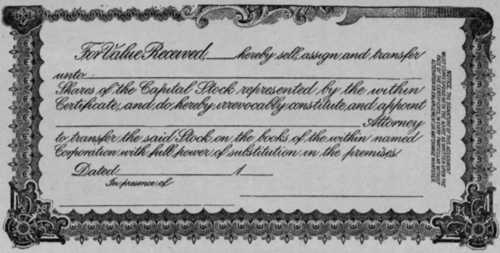 For Value Received, hereby sell, assign and transfer
unto
Shares of the Capital Stock represented by the within
Certificate, and do hereby irrevocably constitute and appoint
Attorney
to transfer the said Stock on the books of the within named
Corporation with full power of substitution in the premises.
Dated 1
In presence of
NOTICE. THE SIGNATURE OF THIS ASSIGNMENT
MUST CORRESPOND WITH THE NAME AS WRITTEN UPON THE
FACE OF THE CERTIFICATE, IN EVERY PARTICULAR, WITHOUT
ALTERATION OR ENLARGEMENT, OR ANY CHANGE WHATEVER.